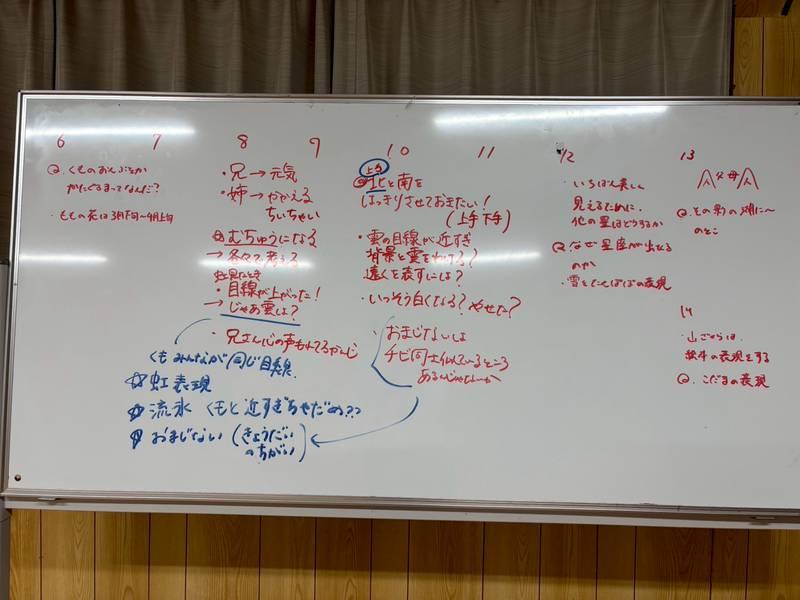 6 7
Q. くものおんぶとか
かたぐるまってなんだ?
・ももの花は3月下旬〜4月上旬
8 9
・兄→元気
・姉→かかえる
ちいちゃい
むちゅうになる
→各々で考える
見たとき
・目線が上がった!
→じゃあ雲は?
・兄さん心の声もれてるかんじ
くも みんなが同じ目線
☆虹表現
☆流氷 くもと近すぎちゃだめ??
おまじない(きょうだい
のちがい)
10 11
上手
北と南を
はっきりさせておきたい!
(上手下手)
・雲の目線が近すぎ
背景と雲をわける??
遠くを表すには?
・いっそう白くなる? やせた?
・おまじないは
チビ同士似ているところ
あるんじゃないか
12
・いちばん美しく
見えるために、
他の星はどうするか
Q. なぜ星座が出てくる
のか
・雪とたんぽぽの表現
13
父母
Q. その影の湖に〜
のとこ
14
・山ごもりは
Q. こだまの表現